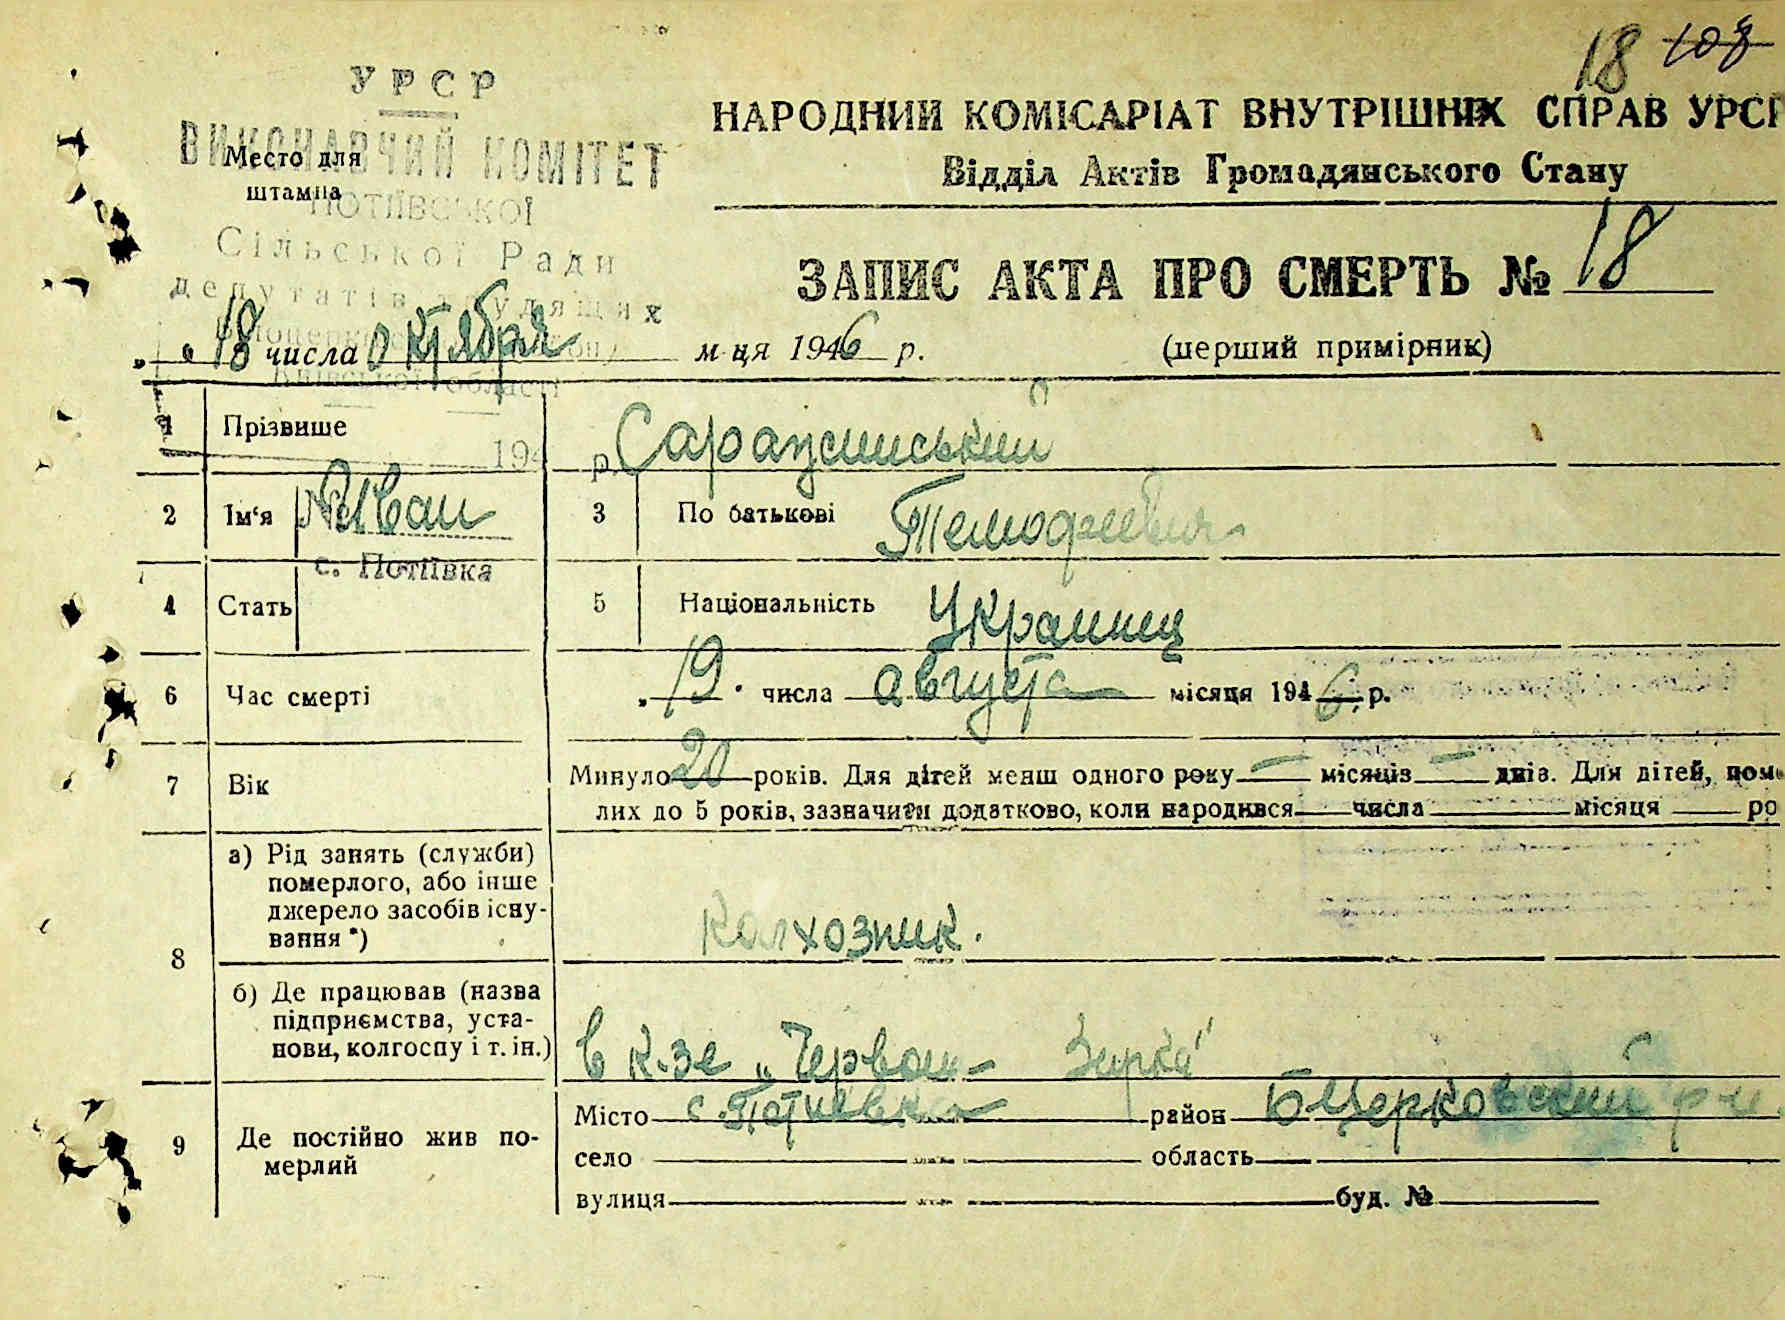 18 108
УРСР
ВИКОНАВЧИЙ КОМІТЕТ
Место для
штампа
ПОТІЇВСЬКОЇ
Сільської Ради
депутатів трудящих
Київської області
194 р.
№
с. Потіївка
НАРОДНИЙ КОМІСАРІАТ ВНУТРІШНІХ СПРАВ УРСР
Відділ Актів Громадянського Стану
ЗАПИС АКТА ПРО СМЕРТЬ № 18
„ “ 18 числа октября м-ця 1946 р. (перший примірник)
1 Прізвище
2 Ім‘я Иван 3 По батькові
4 Стать 5 Національність Украинец
6 Час смерті „ 19 “ числа августа місяця 1946 р.
7 Вік Минуло 20 років. Для дітей менш одного року — місяців — днів. Для дітей, пом
лих до 5 років, зазначити додатково, коли народився числа місяця ро
8 а) Рід занять (служби)
померлого, або інше
джерело засобів існу-
вання *)
Колхозник.
б) Де працював (назва
підприємства, уста-
нови, колгоспу і т. ін.)
в к-зе „Червон- Зирка"
9 Де постійно жив по-
мерлий
Місто с. Потиевка район БЦерковский р-н
село область
вулиця буд. №